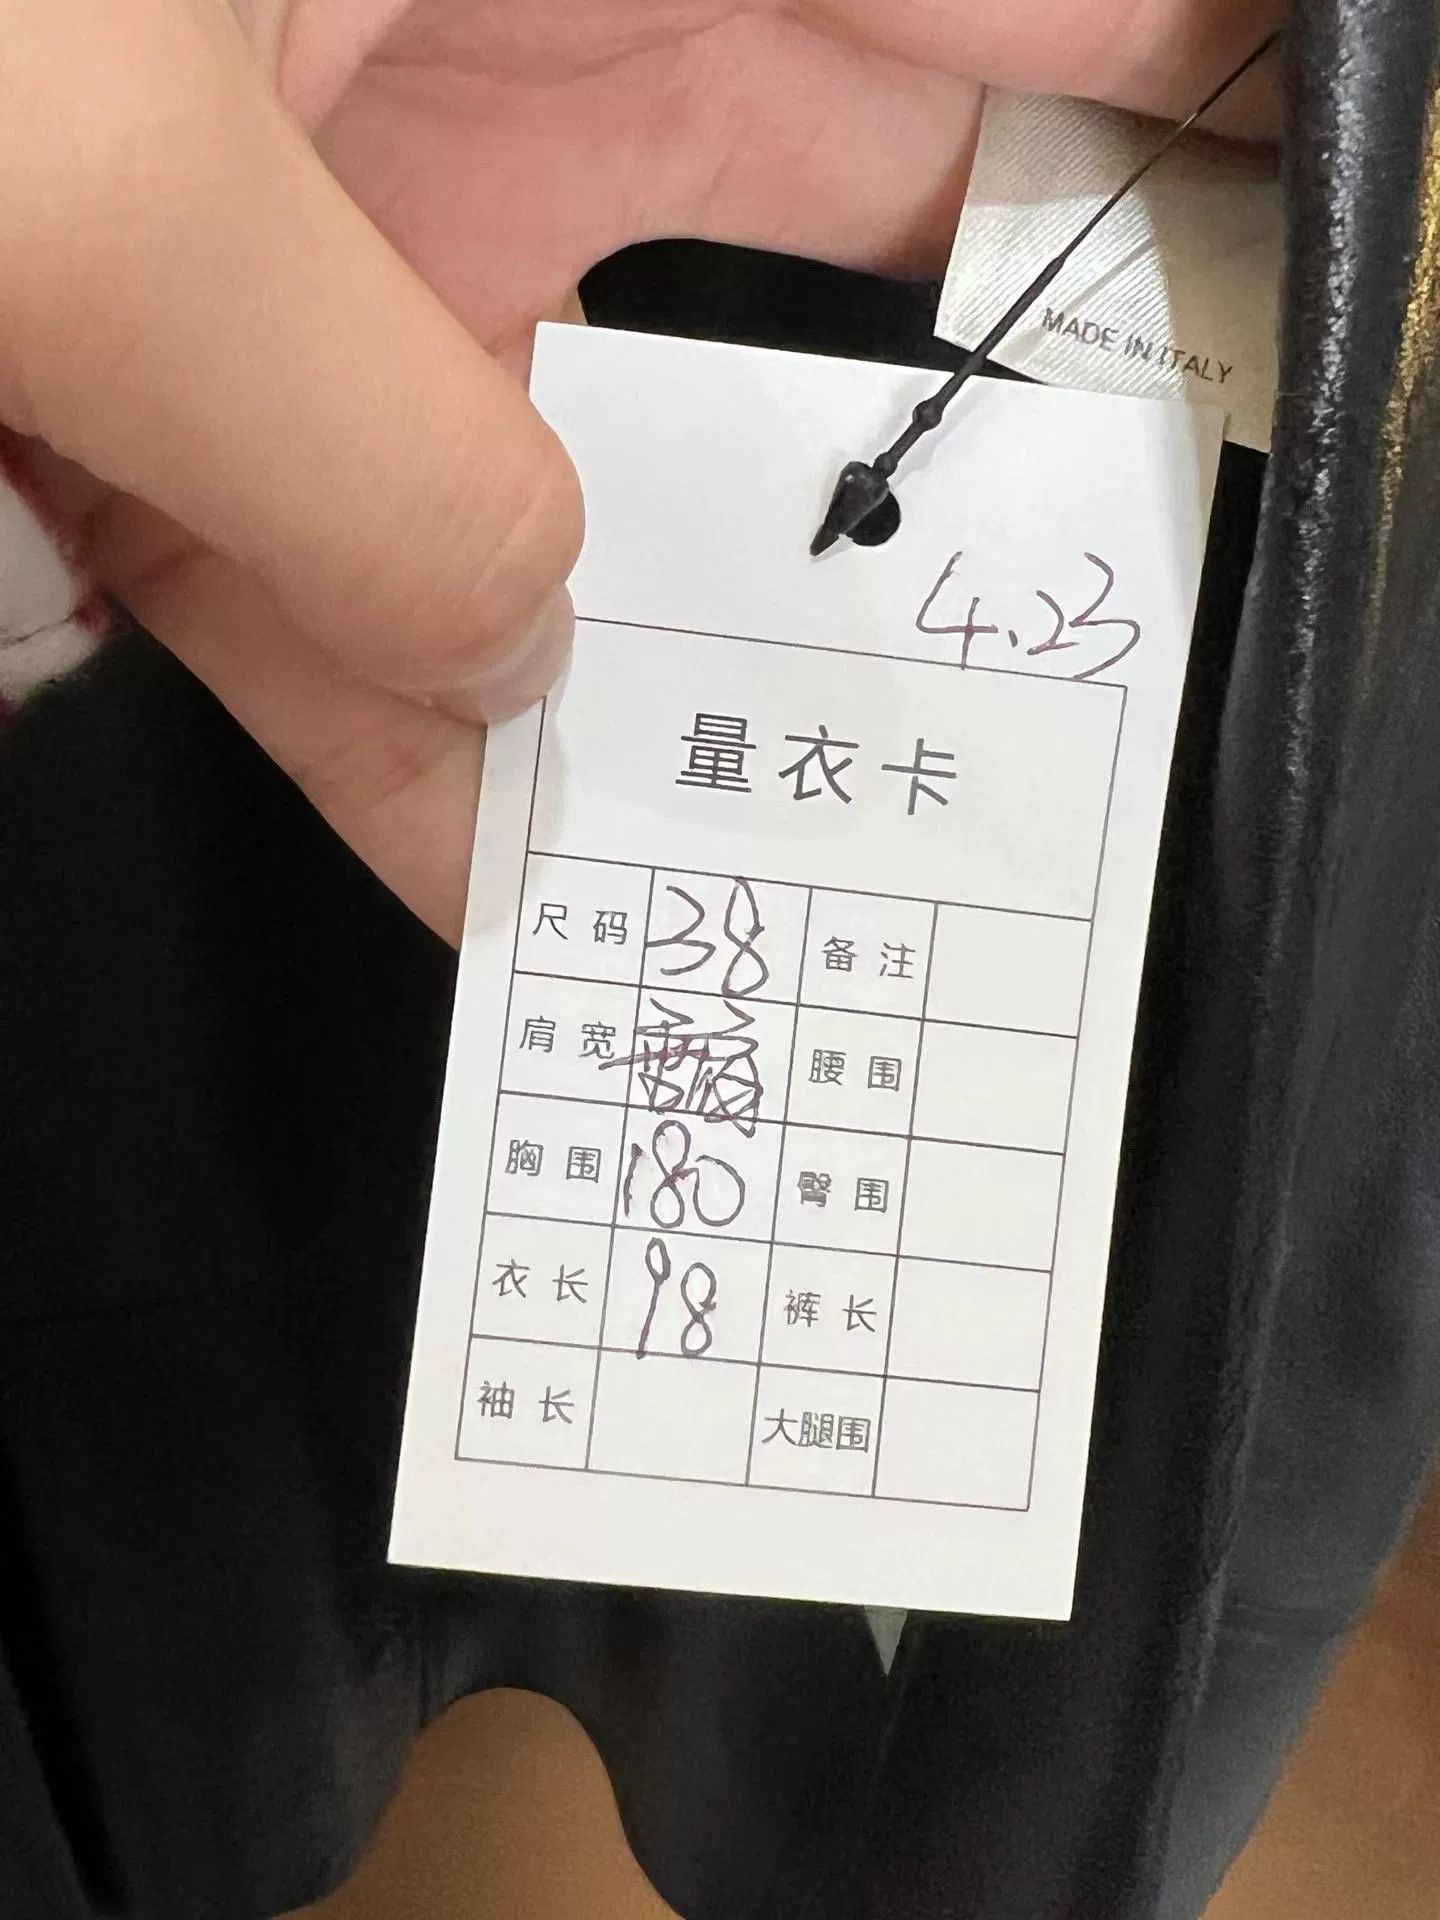 MADE IN ITALY
4.23
量衣卡
尺码 38 备注
肩宽 腰围
胸围 180 臀围
衣长 98 裤长
袖长 大腿围